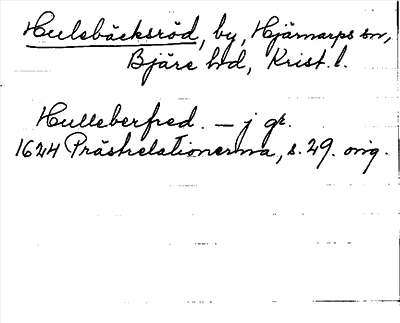 Hulsbäcksröd, by, Hjärnarps sn,
Bjäre hd, Krist. l.
Hulleberfred. – j gr.
1624 Prästrelationerna, s. 29. orig.